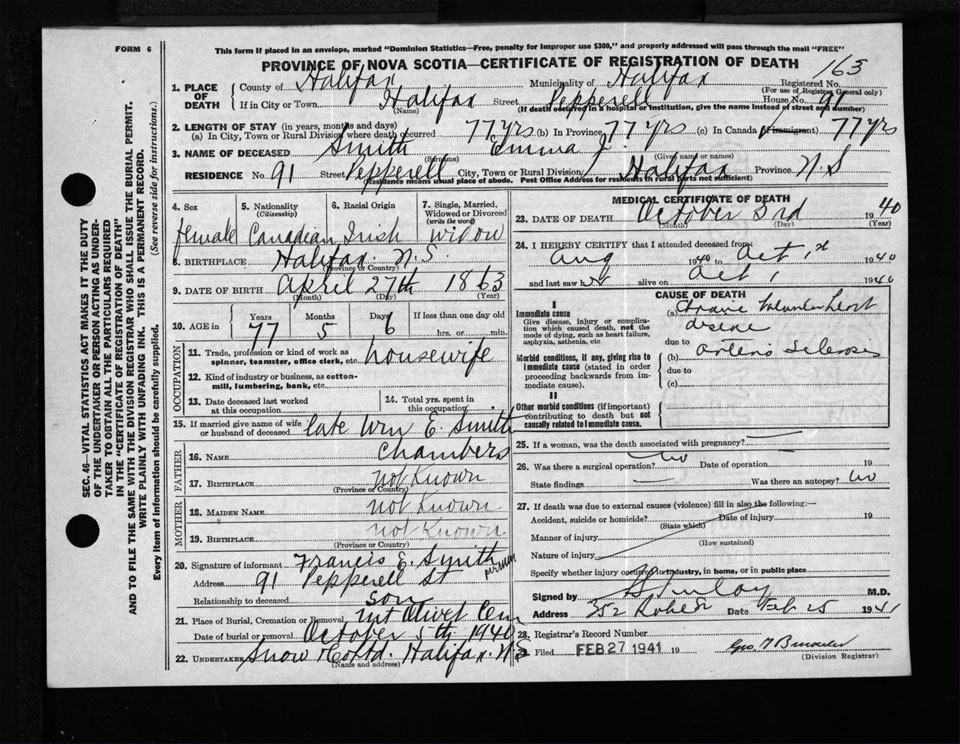 FORM 6
This form if placed in an envelope, marked "Dominion Statistics—Free, penalty for improper use $300," and properly addressed will pass through the mail "FREE"
PROVINCE OF NOVA SCOTIA—CERTIFICATE OF REGISTRATION OF DEATH
163
SEC. 46—VITAL STATISTICS ACT MAKES IT THE DUTY
OF THE UNDERTAKER OR PERSON ACTING AS UNDER-
TAKER TO OBTAIN ALL THE PARTICULARS REQUIRED
IN THE "CERTIFICATE OF REGISTRATION OF DEATH"
AND TO FILE THE SAME WITH THE DIVISION REGISTRAR WHO SHALL ISSUE THE BURIAL PERMIT.
WRITE PLAINLY WITH UNFADING INK. THIS IS A PERMANENT RECORD.
Every item of Information should be carefully supplied. (See reverse side for instructions.)
1. PLACE OF DEATH
County of Halifax Municipality of Halifax Registered No.
(For use of Registrar General only)
If in City or Town Halifax Street Pepperell House No. 91
(Name) (If death occurred in a hospital or institution, give the name instead of street and number)
2. LENGTH OF STAY (in years, months and days)
(a) In City, Town or Rural Division where death occurred 77 yrs (b) In Province 77 yrs (c) In Canada (if immigrant) 77 yrs
3. NAME OF DECEASED Smith Emma J.
(Surname) (Given name or names)
RESIDENCE No. 91 Street Pepperell City, Town or Rural Division Halifax Province N.S
(Residence means usual place of abode. Post Office Address for residents in rural parts not sufficient)
4. Sex
female
5. Nationality
(Citizenship)
Canadian
6. Racial Origin
Irish
7. Single, Married, Widowed or Divorced
(write the word)
widow
8. BIRTHPLACE Halifax N.S.
(Province or Country)
9. DATE OF BIRTH April 27th 1863
(Month) (Day) (Year)
10. AGE in Years Months Days If less than one day old
77 5 6 hrs. or min.
OCCUPATION
11. Trade, profession or kind of work as
spinner, teamster, office clerk, etc. housewife
12. Kind of industry or business, as cotton-
mill, lumbering, bank, etc.
13. Date deceased last worked
at this occupation
14. Total yrs. spent in
this occupation
15. If married give name of wife
or husband of deceased late Wm E. Smith
FATHER
16. NAME Chambers
17. BIRTHPLACE not Known
(Province or Country)
MOTHER
18. MAIDEN NAME not Known
19. BIRTHPLACE not Known
(Province or Country)
20. Signature of informant Francis E. Smith
Address 91 Pepperell St
Relationship to deceased son
21. Place of Burial, Cremation or Removal Mt Olivet Cem
Date of burial or removal October 5th 1940
22. UNDERTAKER Snow & Co Ltd. Halifax. N.S
(Name and address)
MEDICAL CERTIFICATE OF DEATH
23. DATE OF DEATH October 3rd 1940
(Month) (Day) (Year)
24. I HEREBY CERTIFY that I attended deceased from
Aug 1940 to Oct, 1940
and last saw alive on Oct, 1940
CAUSE OF DEATH
I
Immediate cause
Give disease, injury or complica-
tion which caused death, not the
mode of dying, such as heart failure,
asphyxia, asthenia, etc
(a) heart
disease
due to
Morbid conditions, if any, giving rise to
immediate cause (stated in order
proceeding backwards from im-
mediate cause).
(b) arterio sclerosis
due to
(c)
II
Other morbid conditions (if important)
contributing to death but not
causally related to immediate cause.
25. If a woman, was the death associated with pregnancy?
26. Was there a surgical operation? no Date of operation 19
State findings Was there an autopsy? no
27. If death was due to external causes (violence) fill in also the following:—
Accident, suicide or homicide? Date of injury 19
(State which)
Manner of injury
(How sustained)
Nature of injury
Specify whether injury occurred in industry, in home, or in public place
Signed by M.D.
Address 352 Robie St Date Feb 25 1941
28. Registrar's Record Number
Filed FEB 27 1941 19 Geo.
(Division Registrar)